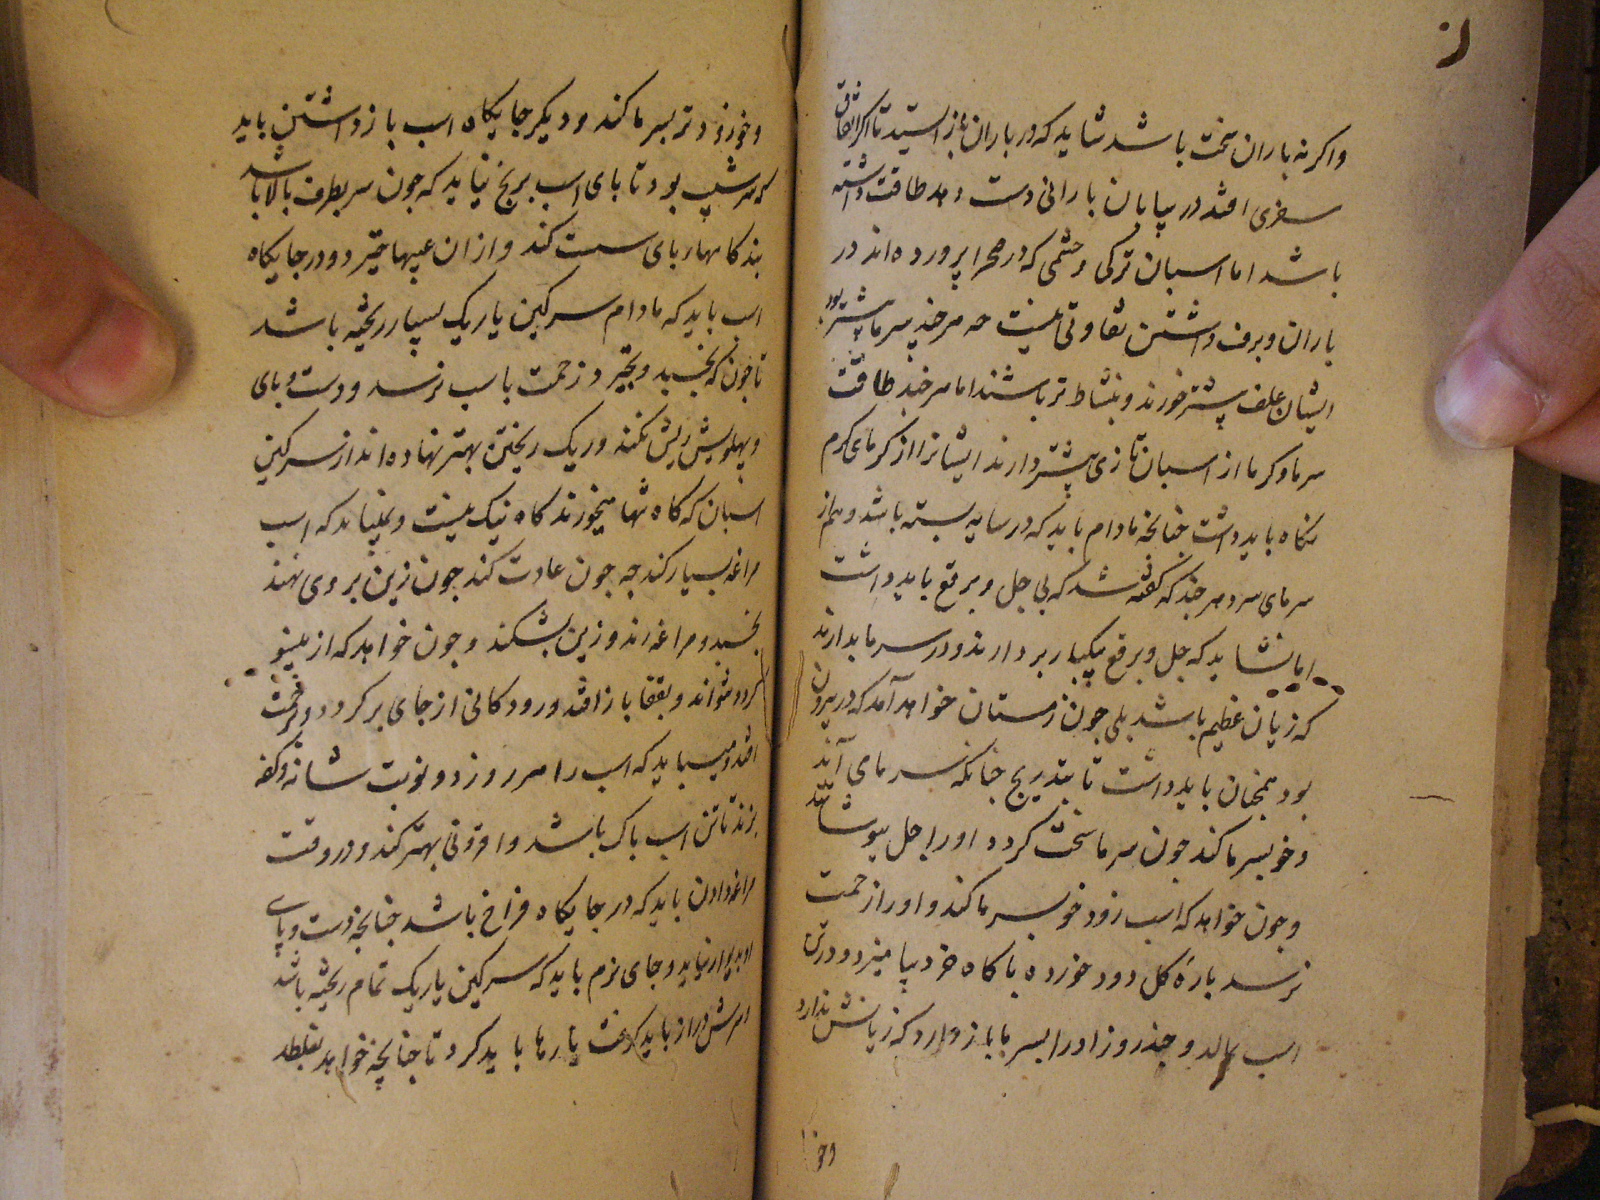 واکر نه باران سخت باشد شاید که در باران باز استید تا اکر اتفاق
سفری افتد در بیابان بارانی دست دهد طاقت داشته
باشد اما اسبان ترکی و حشمی که در صحرا پرورده اند در
باران و برف داشتن تفاوتی نیست چه هر چند سرما بیشتر بود
ایشان علف بیشتر خورند و بنشاط تر باشند اما هر چند طاقت
سرما و کرما از اسبان تازی بیشتر دارند ایشانرا از کرمای کرم
نکاه باید داشت چنانچه مادام باید که در سایه بسته باشد و هم از
سرمای سرد هر چند که کفته شد که بی جل و برقع باید داشت
اما نشاید که جل و برقع بیکبار بردارند و در سرما بدارند
که زیان عظیم باشد بلی چون زمستان خواهد آمد که در بیرون
بود همچنان باید داشت تا بتدریج چنانکه سرما می آید
و خو بسرما کند چون سرما سخت کردد او را جل بپوشانند
و چون خواهد که اسب زود خو بسرما کند و او را زحمت
نرسد پارۀ کل دود خورده با کاه خرد بیامیزد و در تن
اسب بمالد و چند روز او را بسرما باز دارد که زیانش ندارد
وخو
وخو زود تر بسرما کند و دیکر جایکاه اسب بازداشتن باید
شیب بود تا پای اسب برنج نیاید که چون سر بطرف بالا باشد
بند کاهها و پای سست کند و از ان عیبها خیزد و در جایکاه
اسب باید که مادام سرکین یا ریک بسیار ریخته باشد
تا چون که بخسبد و بخیزد زحمت باسب نرسد و دست و پای
و پهلویش ریش نکند و ریک ریختن بهتر نهاده اند از سرکین
اسبان که کاه تنها میخورند کاه نیک نیست و نباید که اسب
مراغه بسیار کند چه چون عادت کند چون زین بر وی نهند
بخسبد و مراغه زند و زین بشکند و چون خواهد که از
کردد نتواند و بقفا باز افتد و رودکانی از جای بر کردد و زحمت
افتد و میباید که اسب را هر روز دو نوبت شانه و
بزند تا تن اسب پاک باشد و افزونی بهتر کند و در وقت
مراغه دادن باید که در جایکاه فراخ باشد چنانچه دست و پای
او بدیوار نیاید و جای نرم باید که سرکین یا ریک تمام ریخته باشد
دراز باید یا رها باید کرد تا چنانچه خواهد بغلطد